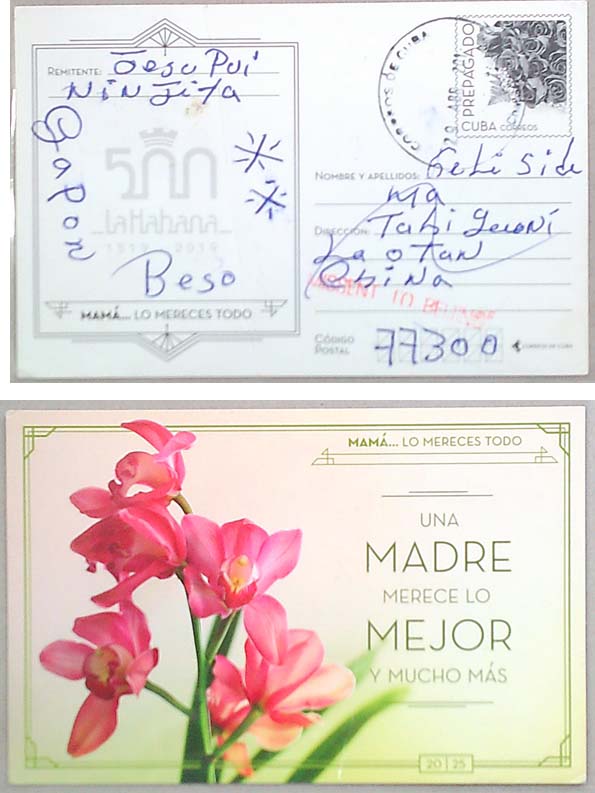 REMITENTE: Jesu Pui
NinJiTa
Japon
500
La Habana
1519 2019
Beso
MAMÁ... LO MERECES TODO
CORREOS DE CUBA
PREPAGADO
CUBA CORREOS
NOMBRE Y APELLIDOS: Side
ma
DIRECCIÓN:
China
MISSENT TO
CÓDIGO
POSTAL 77300
CORREOS DE CUBA
MAMÁ... LO MERECES TODO
UNA
MADRE
MERECE LO
MEJOR
Y MUCHO MÁS
20 25